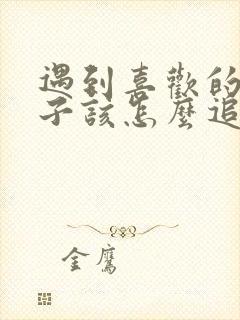 遇到喜歡的
子該怎麼追
金鷹